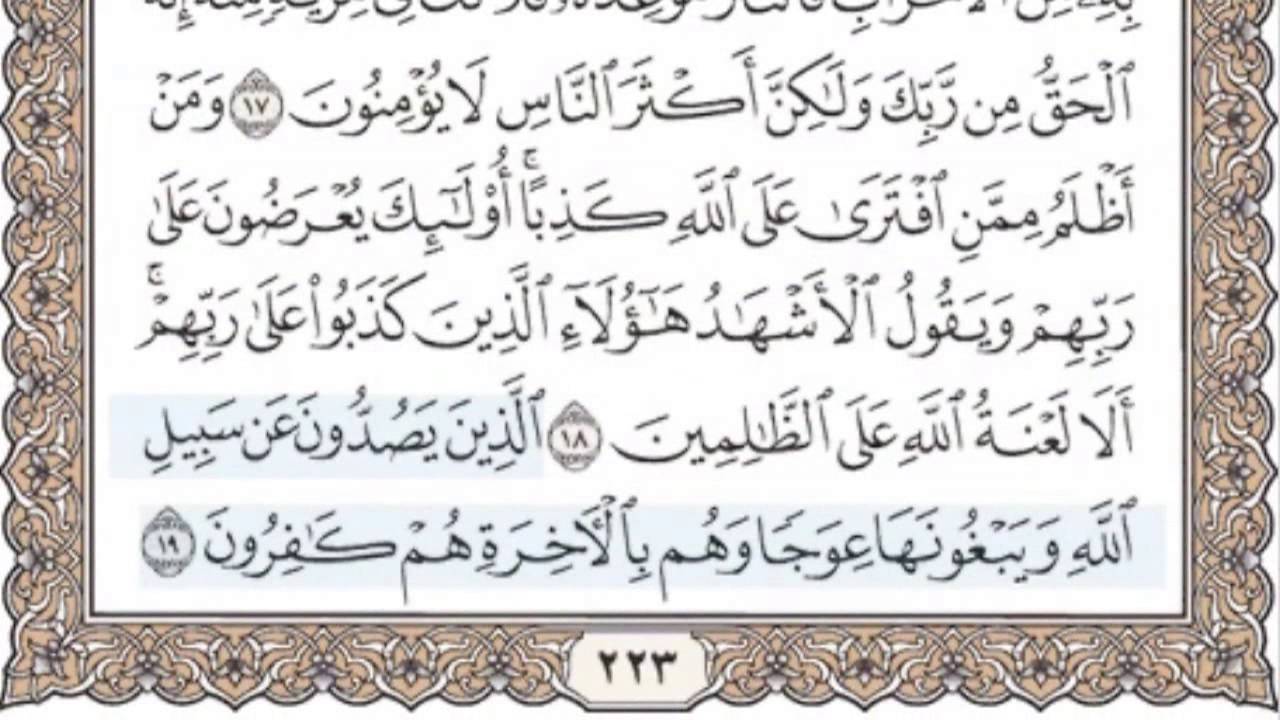 بِهِۦ مِنَ ٱلْأَحْزَابِ فَٱلنَّارُ مَوْعِدُهُۥ فَلَا تَكُ فِى مِرْيَةٍ مِّنْهُ إِنَّهُ
ٱلْحَقُّ مِن رَّبِّكَ وَلَٰكِنَّ أَكْثَرَ ٱلنَّاسِ لَا يُؤْمِنُونَ ١٧ وَمَنْ
أَظْلَمُ مِمَّنِ ٱفْتَرَىٰ عَلَى ٱللَّهِ كَذِبًا ۚ أُو۟لَٰٓئِكَ يُعْرَضُونَ عَلَىٰ
رَبِّهِمْ وَيَقُولُ ٱلْأَشْهَٰدُ هَٰٓؤُلَآءِ ٱلَّذِينَ كَذَبُوا۟ عَلَىٰ رَبِّهِمْ ۚ
أَلَا لَعْنَةُ ٱللَّهِ عَلَى ٱلظَّٰلِمِينَ ١٨ ٱلَّذِينَ يَصُدُّونَ عَن سَبِيلِ
ٱللَّهِ وَيَبْغُونَهَا عِوَجًا وَهُم بِٱلْـَٔاخِرَةِ هُمْ كَٰفِرُونَ ١٩
٢٢٣